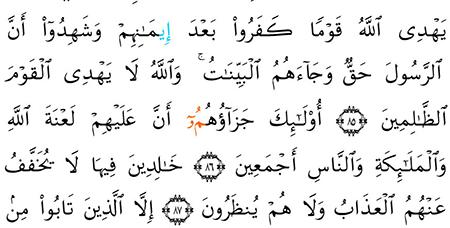 يَهْدِى ٱللَّهُ قَوْمًا كَفَرُوا۟ بَعْدَ إِيمَـٰنِهِمْ وَشَهِدُوٓا۟ أَنَّ
ٱلرَّسُولَ حَقٌّ وَجَآءَهُمُ ٱلْبَيِّنَـٰتُ ۚ وَٱللَّهُ لَا يَهْدِى ٱلْقَوْمَ
ٱلظَّـٰلِمِينَ ۝٨٥ أُو۟لَـٰٓئِكَ جَزَآؤُهُمُۥٓ أَنَّ عَلَيْهِمْ لَعْنَةَ ٱللَّهِ
وَٱلْمَلَـٰٓئِكَةِ وَٱلنَّاسِ أَجْمَعِينَ ۝٨٦ خَـٰلِدِينَ فِيهَا لَا يُخَفَّفُ
عَنْهُمُ ٱلْعَذَابُ وَلَا هُمْ يُنظَرُونَ ۝٨٧ إِلَّا ٱلَّذِينَ تَابُوا۟ مِنۢ